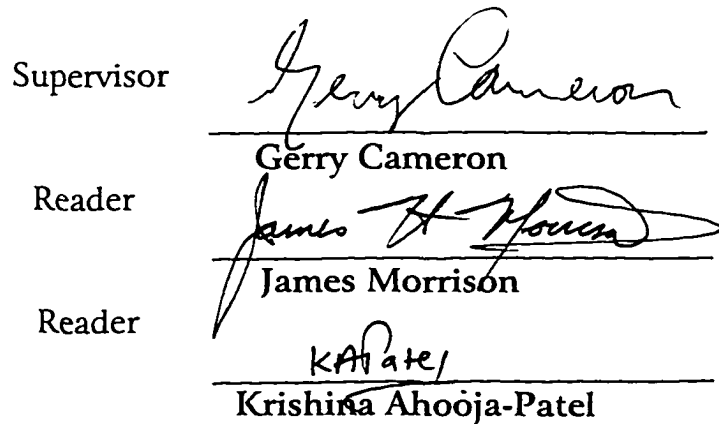 Supervisor
Gerry Cameron
Gerry Cameron
Reader
James H Morrison
James Morrison
Reader
KAPatel
Krishina Ahooja-Patel